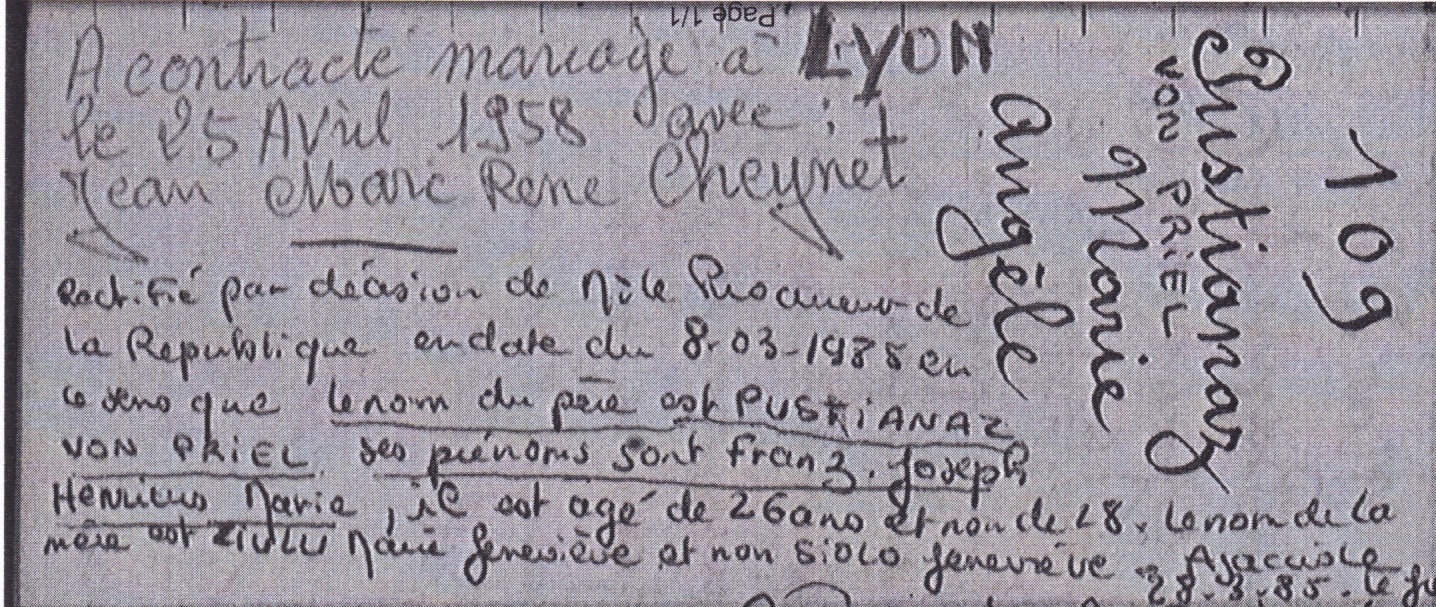 Page 1/1
A contracté mariage à LYON
le 25 Avril 1958 avec :
Jean Marc René Cheynet
Rectifié par décision de Mr le Procureur de
la Republique en date du 8-03-1985 en
ce sens que le nom du père est PUSTIANAZ
VON PRIEL ses prénoms sont Franz. Joseph
Henricus Maria, il est agé de 26 ans et non de 28. le nom de la
mère est ZIULU Marie Geneviève et non SIOLO Geneviève - Ajaccio le
28.3.85.
109
Pustianaz
VON PRIEL
Marie
Angèle